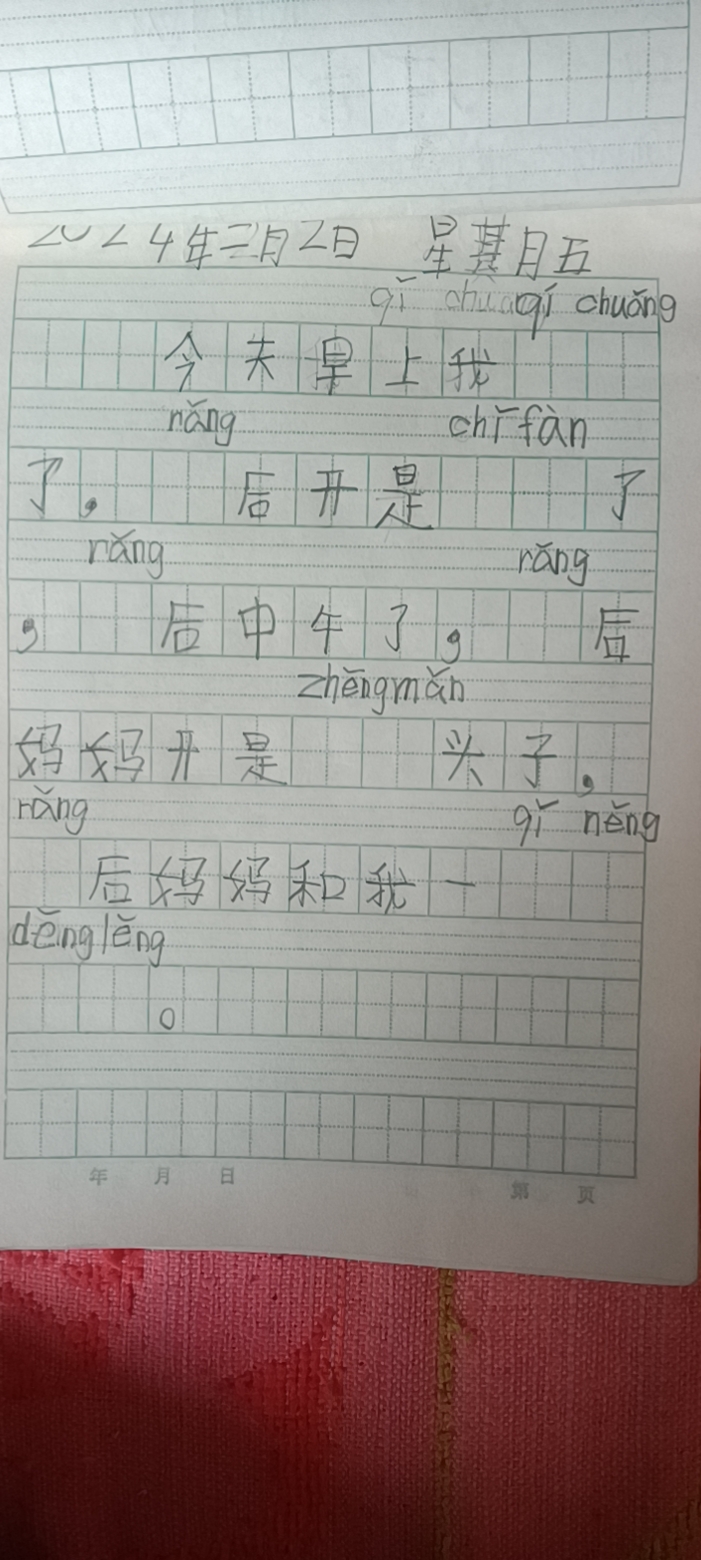 2024年二月2日 星期五
qǐ chuáng qí chuǎng
今天早上我
rǎng chǐ fàn
了，后开是了
rǎng rǎng
，后中午了，后
zhěngmǎn
妈妈开是头子，
rǎng qǐ něng
后妈妈和我一
děng lěng
。
年 月 日 第 页